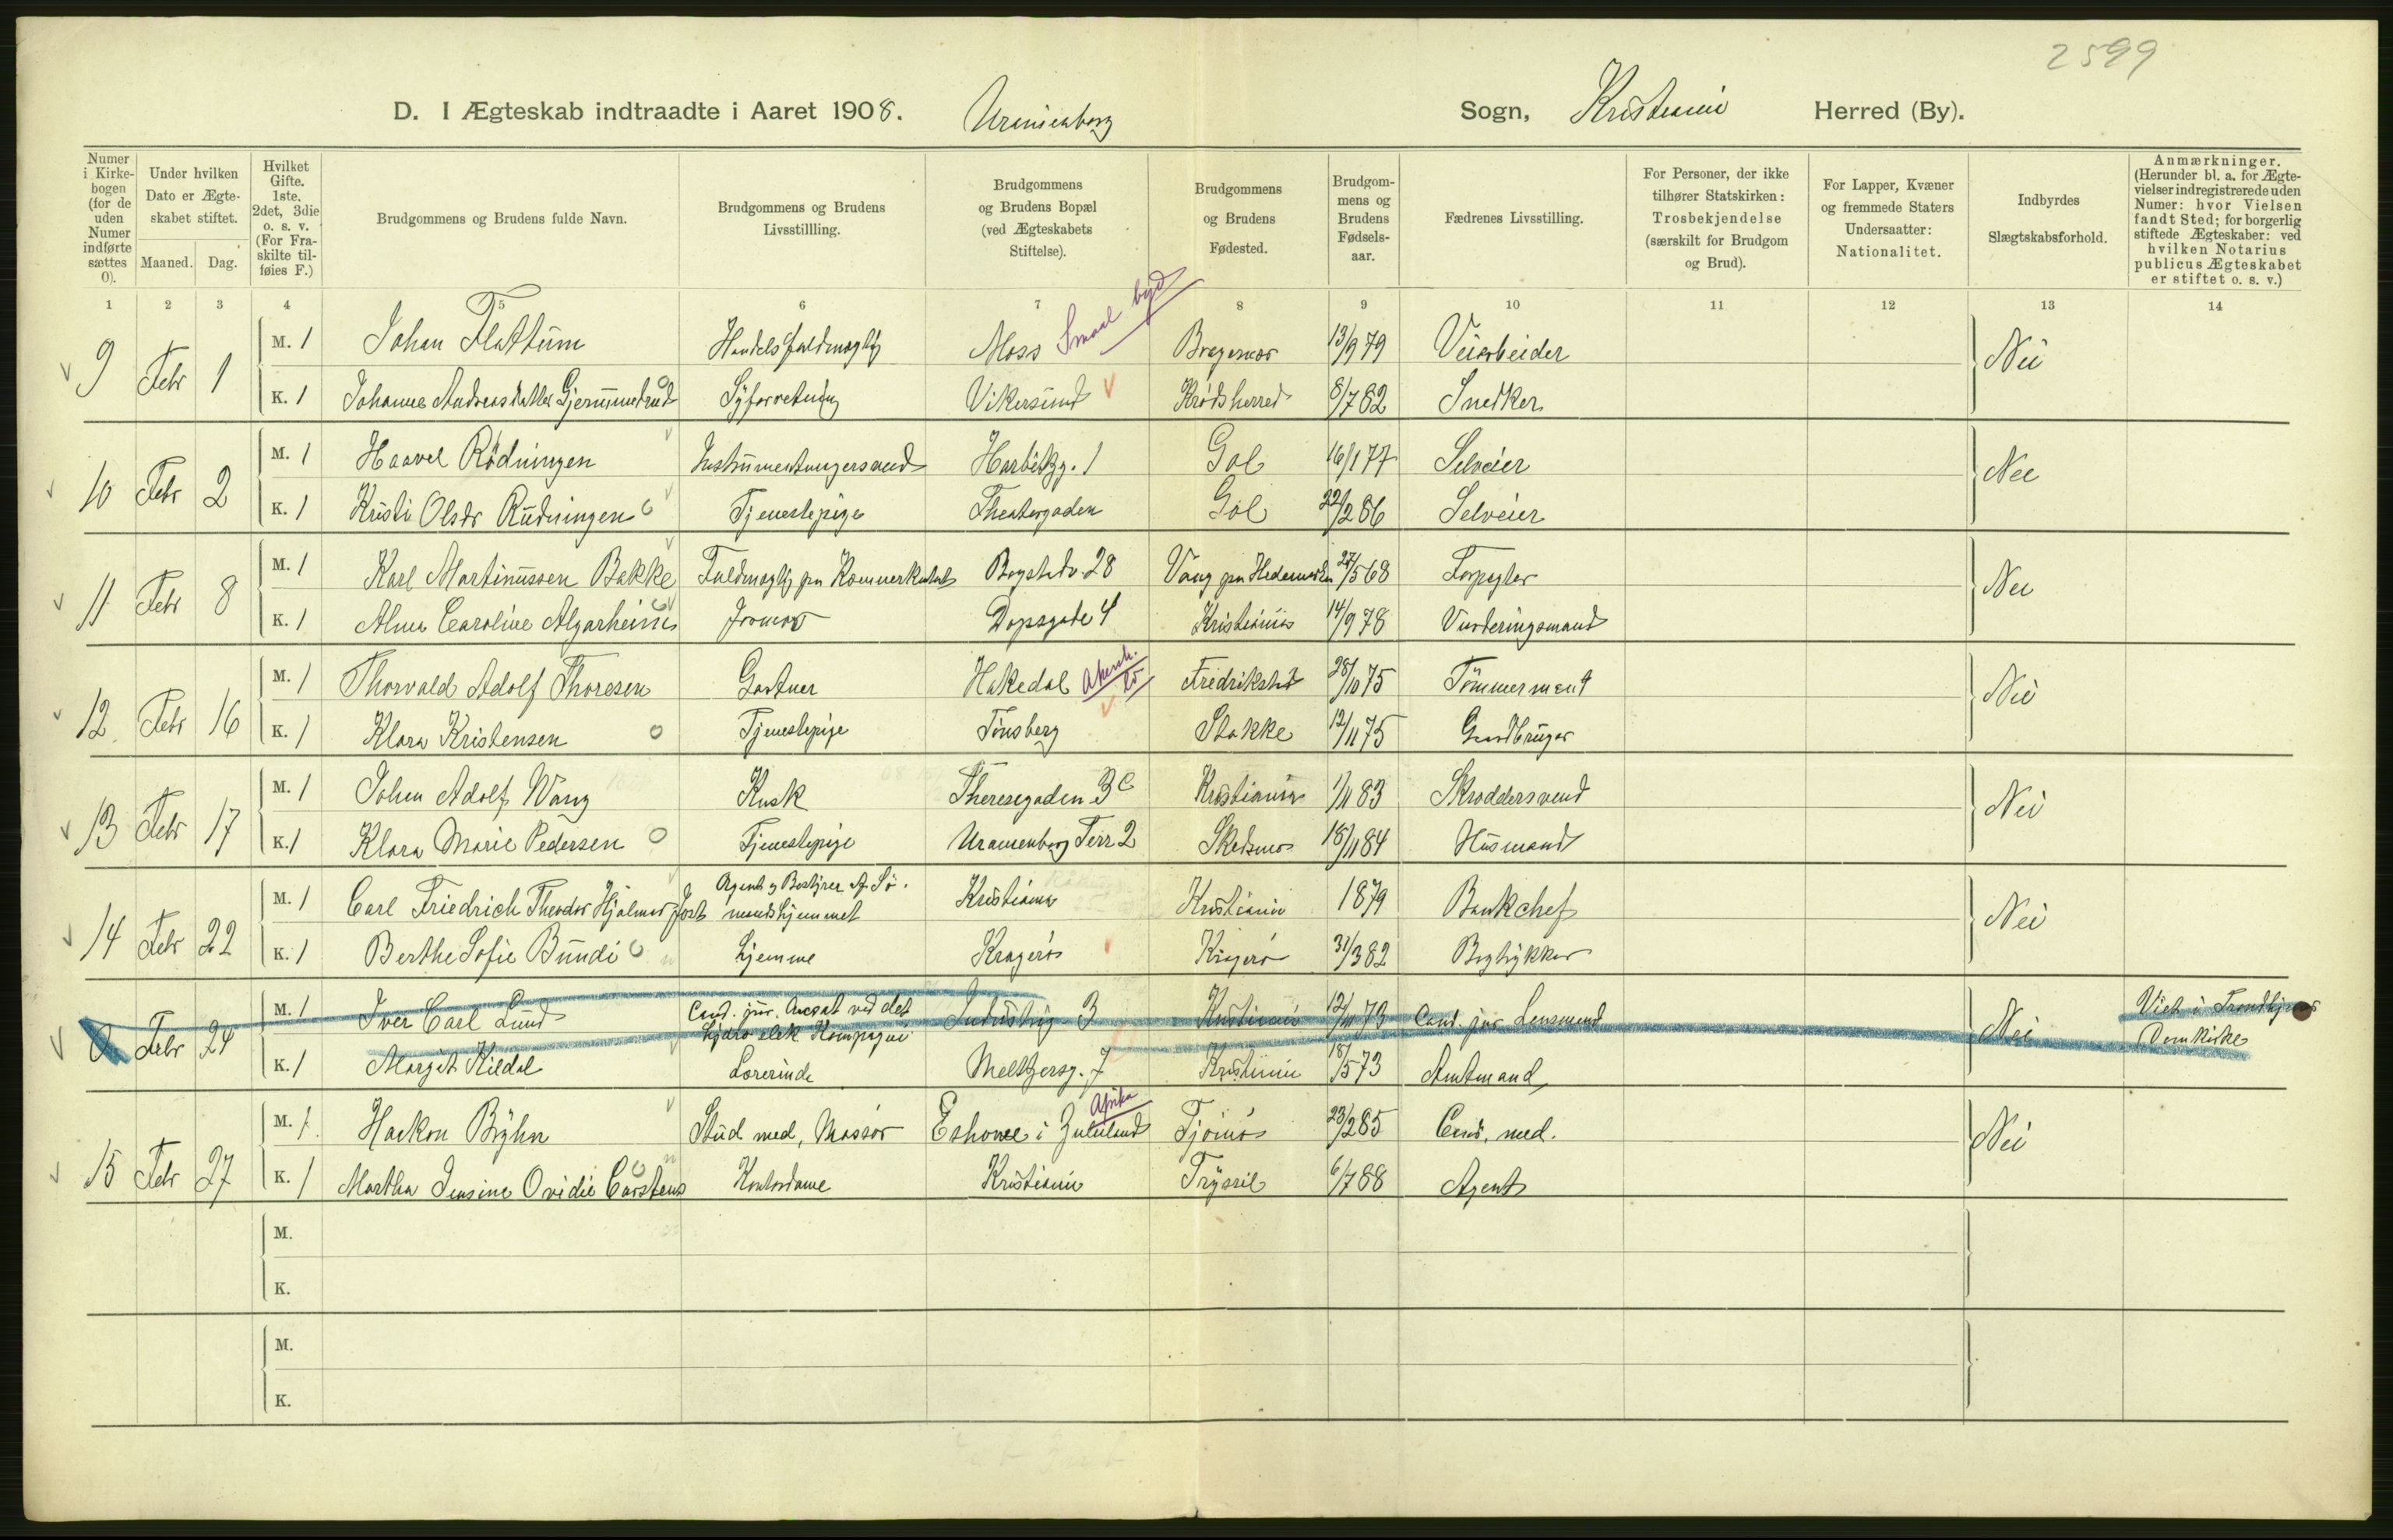 2599
D. I Ægteskab indtraadte i Aaret 1908. Uranienborg Sogn, Kristiania Herred (By).
Numer i Kirkebogen (for de uden Numer indførte sættes 0).
Under hvilken Dato er Ægteskabet stiftet.
Maaned. Dag.
Hvilket Gifte. 1ste. 2det, 3die o. s. v. (For Fraskilte tilføies F.)
Brudgommens og Brudens fulde Navn.
Brudgommens og Brudens Livsstillling.
Brudgommens og Brudens Bopæl (ved Ægteskabets Stiftelse).
Brudgommens og Brudens Fødested.
Brudgommens og Brudens Fødselsaar.
Fædrenes Livsstilling.
For Personer, der ikke tilhører Statskirken: Trosbekjendelse (særskilt for Brudgom og Brud).
For Lapper, Kvæner og fremmede Staters Undersaatter: Nationalitet.
Indbyrdes Slægtskabsforhold.
Anmærkninger. (Herunder bl. a. for Ægtevielser indregistrerede uden Numer: hvor Vielsen fandt Sted; for borgerlig stiftede Ægteskaber: ved hvilken Notarius publicus Ægteskabet er stiftet o. s. v.)
1 2 3 4 5 6 7 8 9 10 11 12 13 14
9 Febr 1 M. 1 Johan Flattum Handelsfuldmægtig Moss Smaal byd Bragernes 13/9 79 Veiarbeider Nei
K. 1 Johanne Andreasdatter Gjermundrud Syforretning Vikersund Krødsherred 8/7 82 Snedker
10 Febr 2 M. 1 Haavel Rødningen Instrumentmagersvend Harbitzg. 1 Gol 16/1 77 Selveier Nei
K. 1 Kristi Olsdr Rudningen Tjenestepige Theatergaden Gol 22/2 86 Selveier
11 Febr 8 M. 1 Karl Martinussen Bakke Fuldmægtig paa Bogstadv. 28 Vang paa Hedemarken 27/5 68 Forpagter Nei
K. 1 Alma Caroline Algarheim Dopsgade 4 Kristiania 14/9 78 Vurderingsmand
12 Febr 16 M. 1 Thorvald Adolf Thoresen Gartner Hakedal Akersh. Fredrikstad 28/10 75 Tømmermand Nei
K. 1 Klara Kristensen Tjenestepige Tønsberg Stokke 12/11 75 Gaardbruger
13 Febr 17 M. 1 Johan Adolf Wang Kusk Theresegaden 3 c Kristiania 1/11 83 Skræddersvend Nei
K. 1 Klara Marie Pedersen Tjenestepige Uranienborg Terr 2 Skedsmo 18/11 84 Husmand
14 Febr 22 M. 1 Carl Friedrich Theodor Hjalmar Agent og Bestyrer af Sømandshjemmet Kristiania Kristiania 1879 Bankchef Nei
K. 1 Berthe Sofie Bundi hjemme Kragerø Kragerø 31/3 82 Bogtrykker
0 Febr 24 M. 1 Iver Carl Lund Cand. jur. Ansat ved det hydro elek Kompagni Industrig 3 Kristiania 12/11 73 Cand. jur Lensmand Nei Viet i Trondhjems Domkirke
K. 1 Margit Kildal Lærerinde Meltzersg. 7 Kristiania 18/5 73 Amtmand
15 Febr 27 M. 1 Haakon Bryhn Stud med, Massør Eshowe i Zululand Afrika Tjømø 23/2 85 Cand. med. Nei
K. 1 Martha Jensine Ovidie Carstens Kontordame Kristiania Trysil 6/7 88 Agent
M.
K.
M.
K.